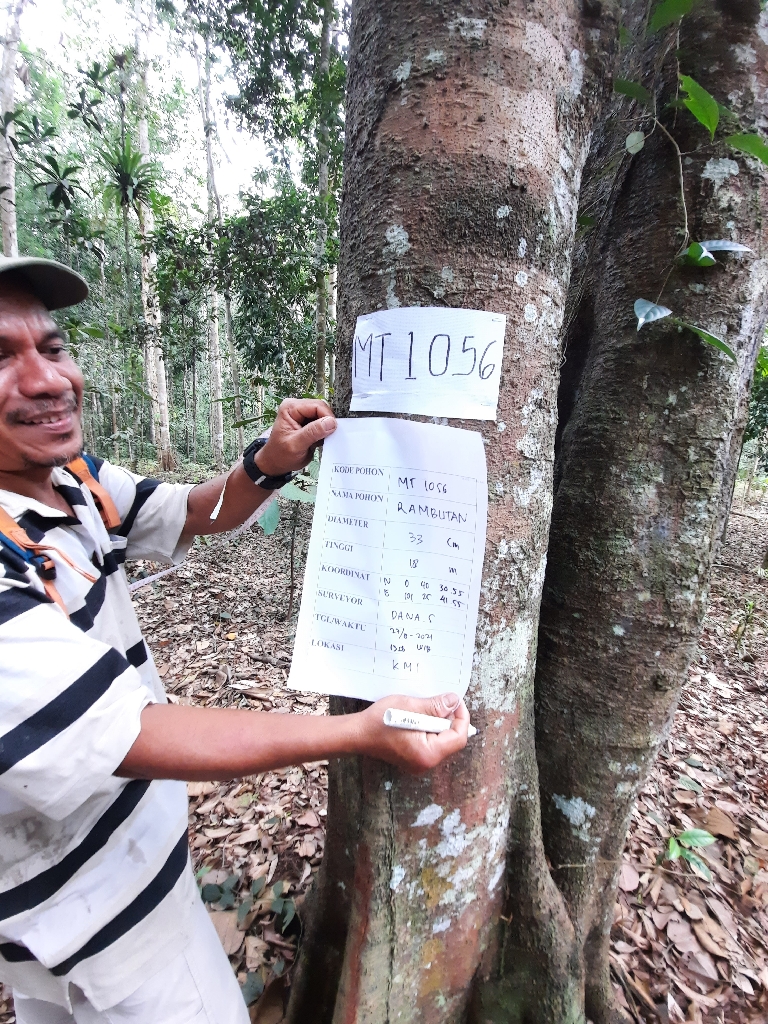 MT 1056
KODE POHON MT 1056
NAMA POHON RAMBUTAN
DIAMETER 33 Cm
TINGGI 18 m
KOORDINAT N 0 40 30.55
E 101 25 41.55
SURVEYOR DANA.S
TGL/WAKTU 27/8-2021
LOKASI KMI